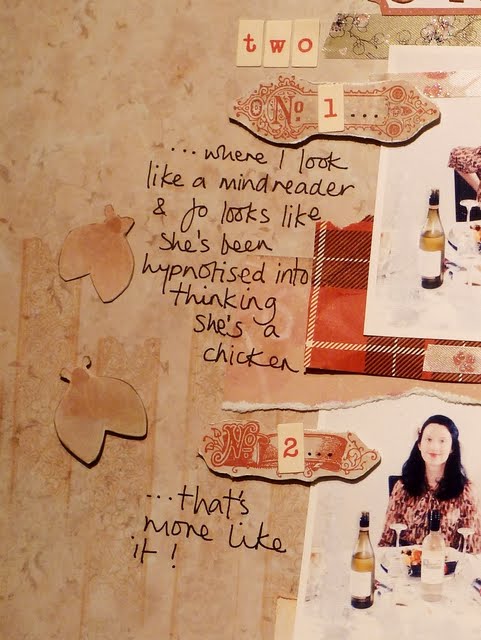 two
No. 1...
...where I look
like a mindreader
& Jo looks like
she's been
hypnotised into
thinking
she's a
chicken
No. 2...
...that's
more like
it!